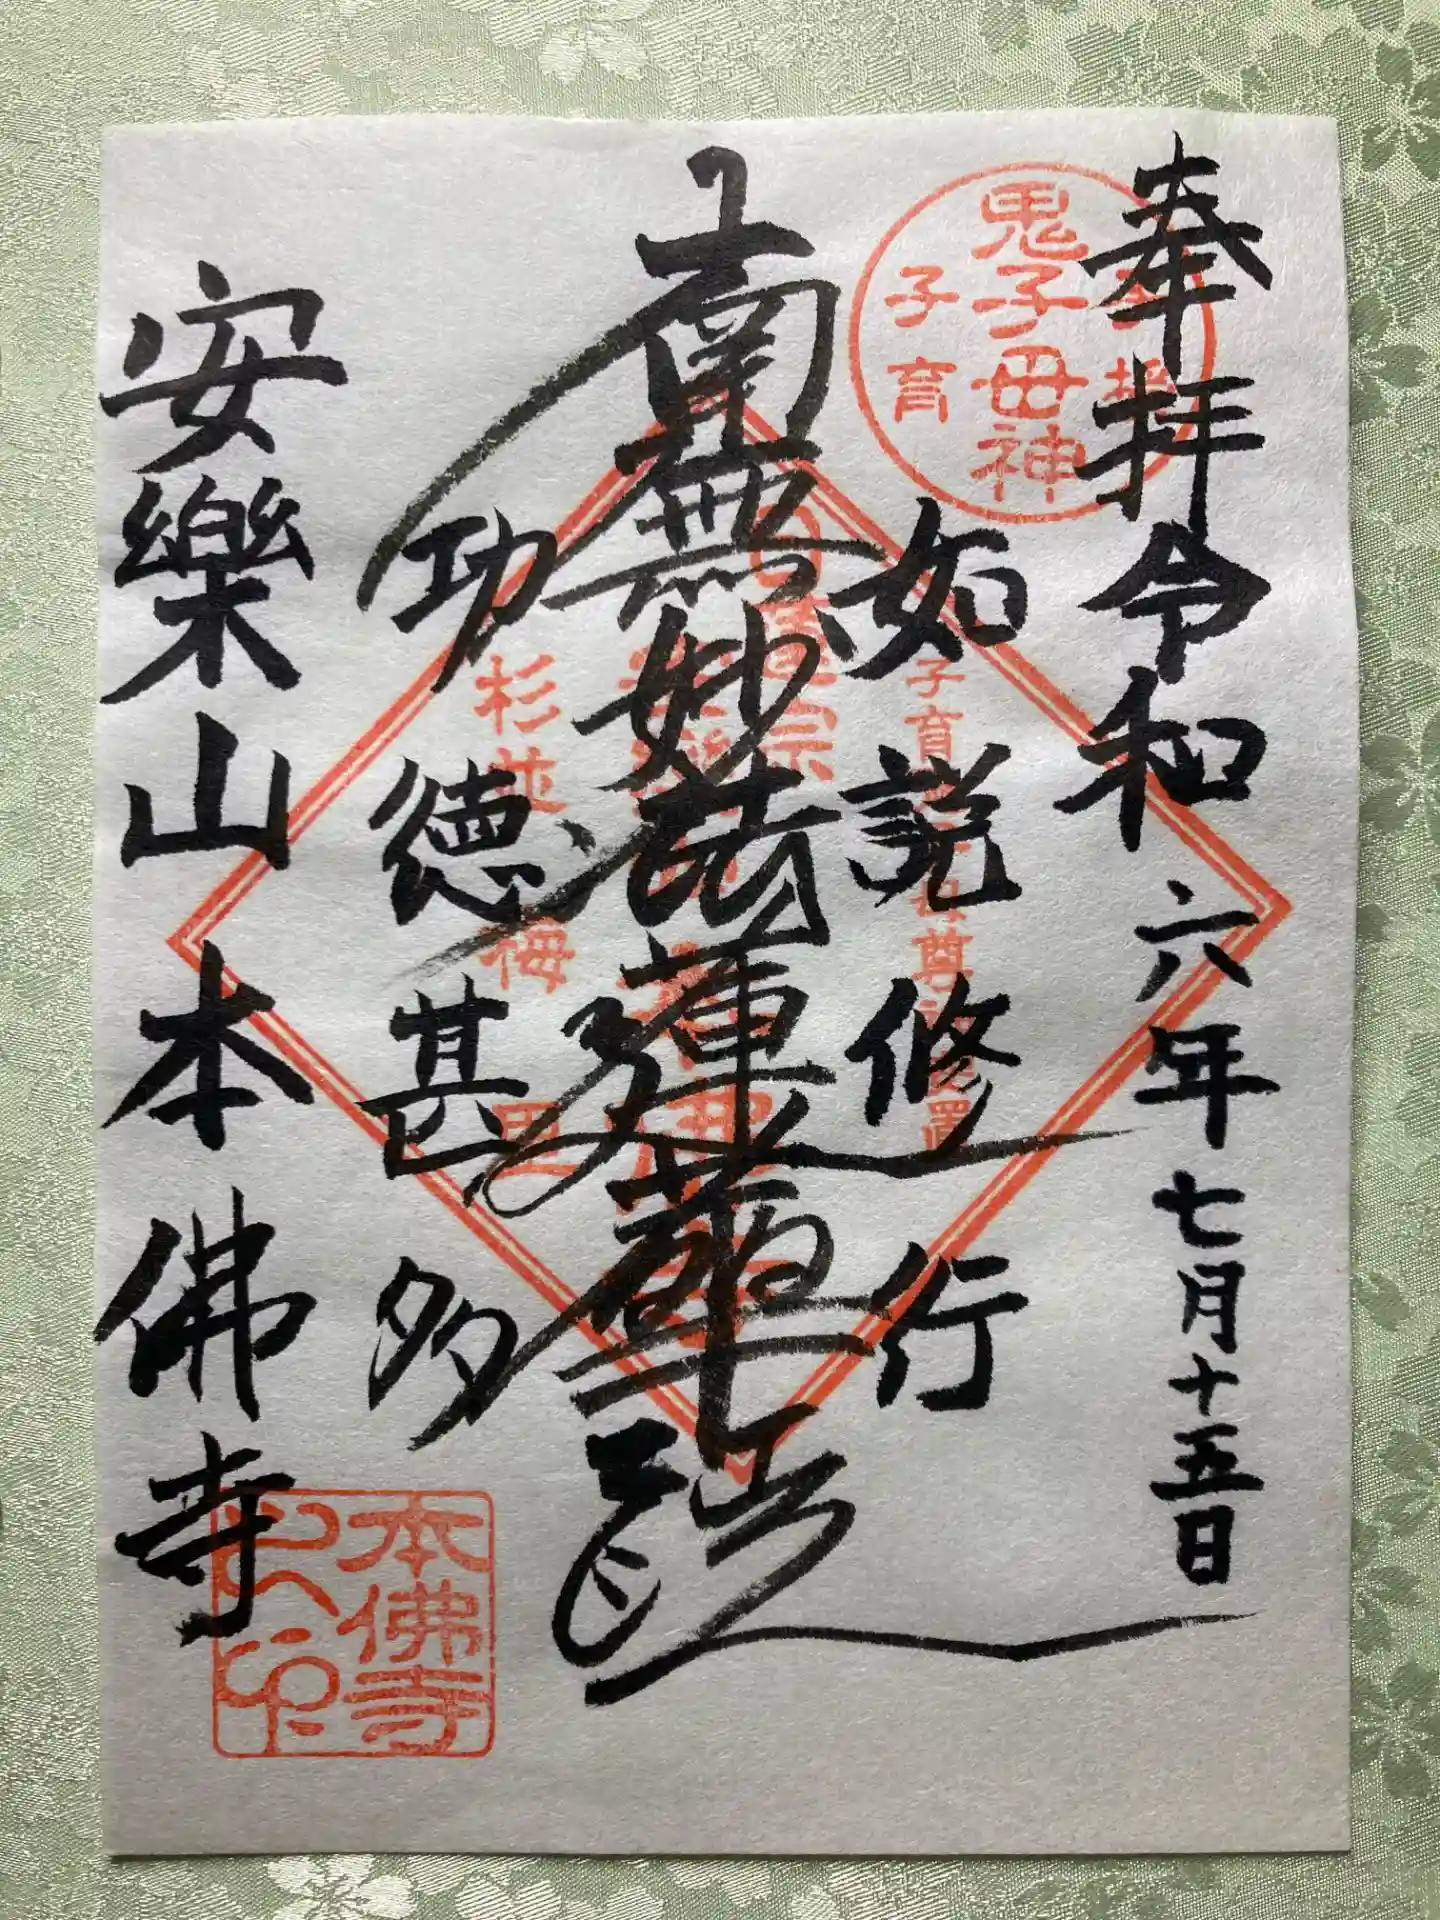 奉拝令和六年七月十五日
鬼子母神
子育
如説修行
南無妙法蓮華経
功徳甚多
安樂山本佛寺
杉並
梅里
本佛寺
之印